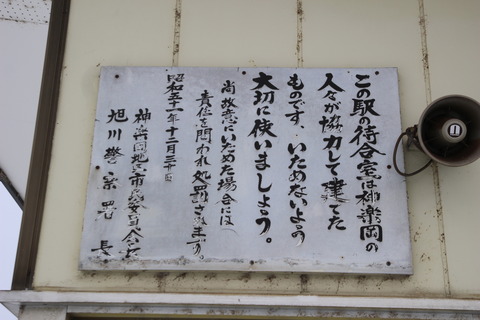 この駅の待合室は神楽岡の
人々が協力して建てた
ものです、いためないよう
大切に使いましょう。
尚故意にいためた場合には
責任を問われ処罰されます。
昭和五十一年十二月三十日
神楽岡地区市民委員会長
旭川警察署長